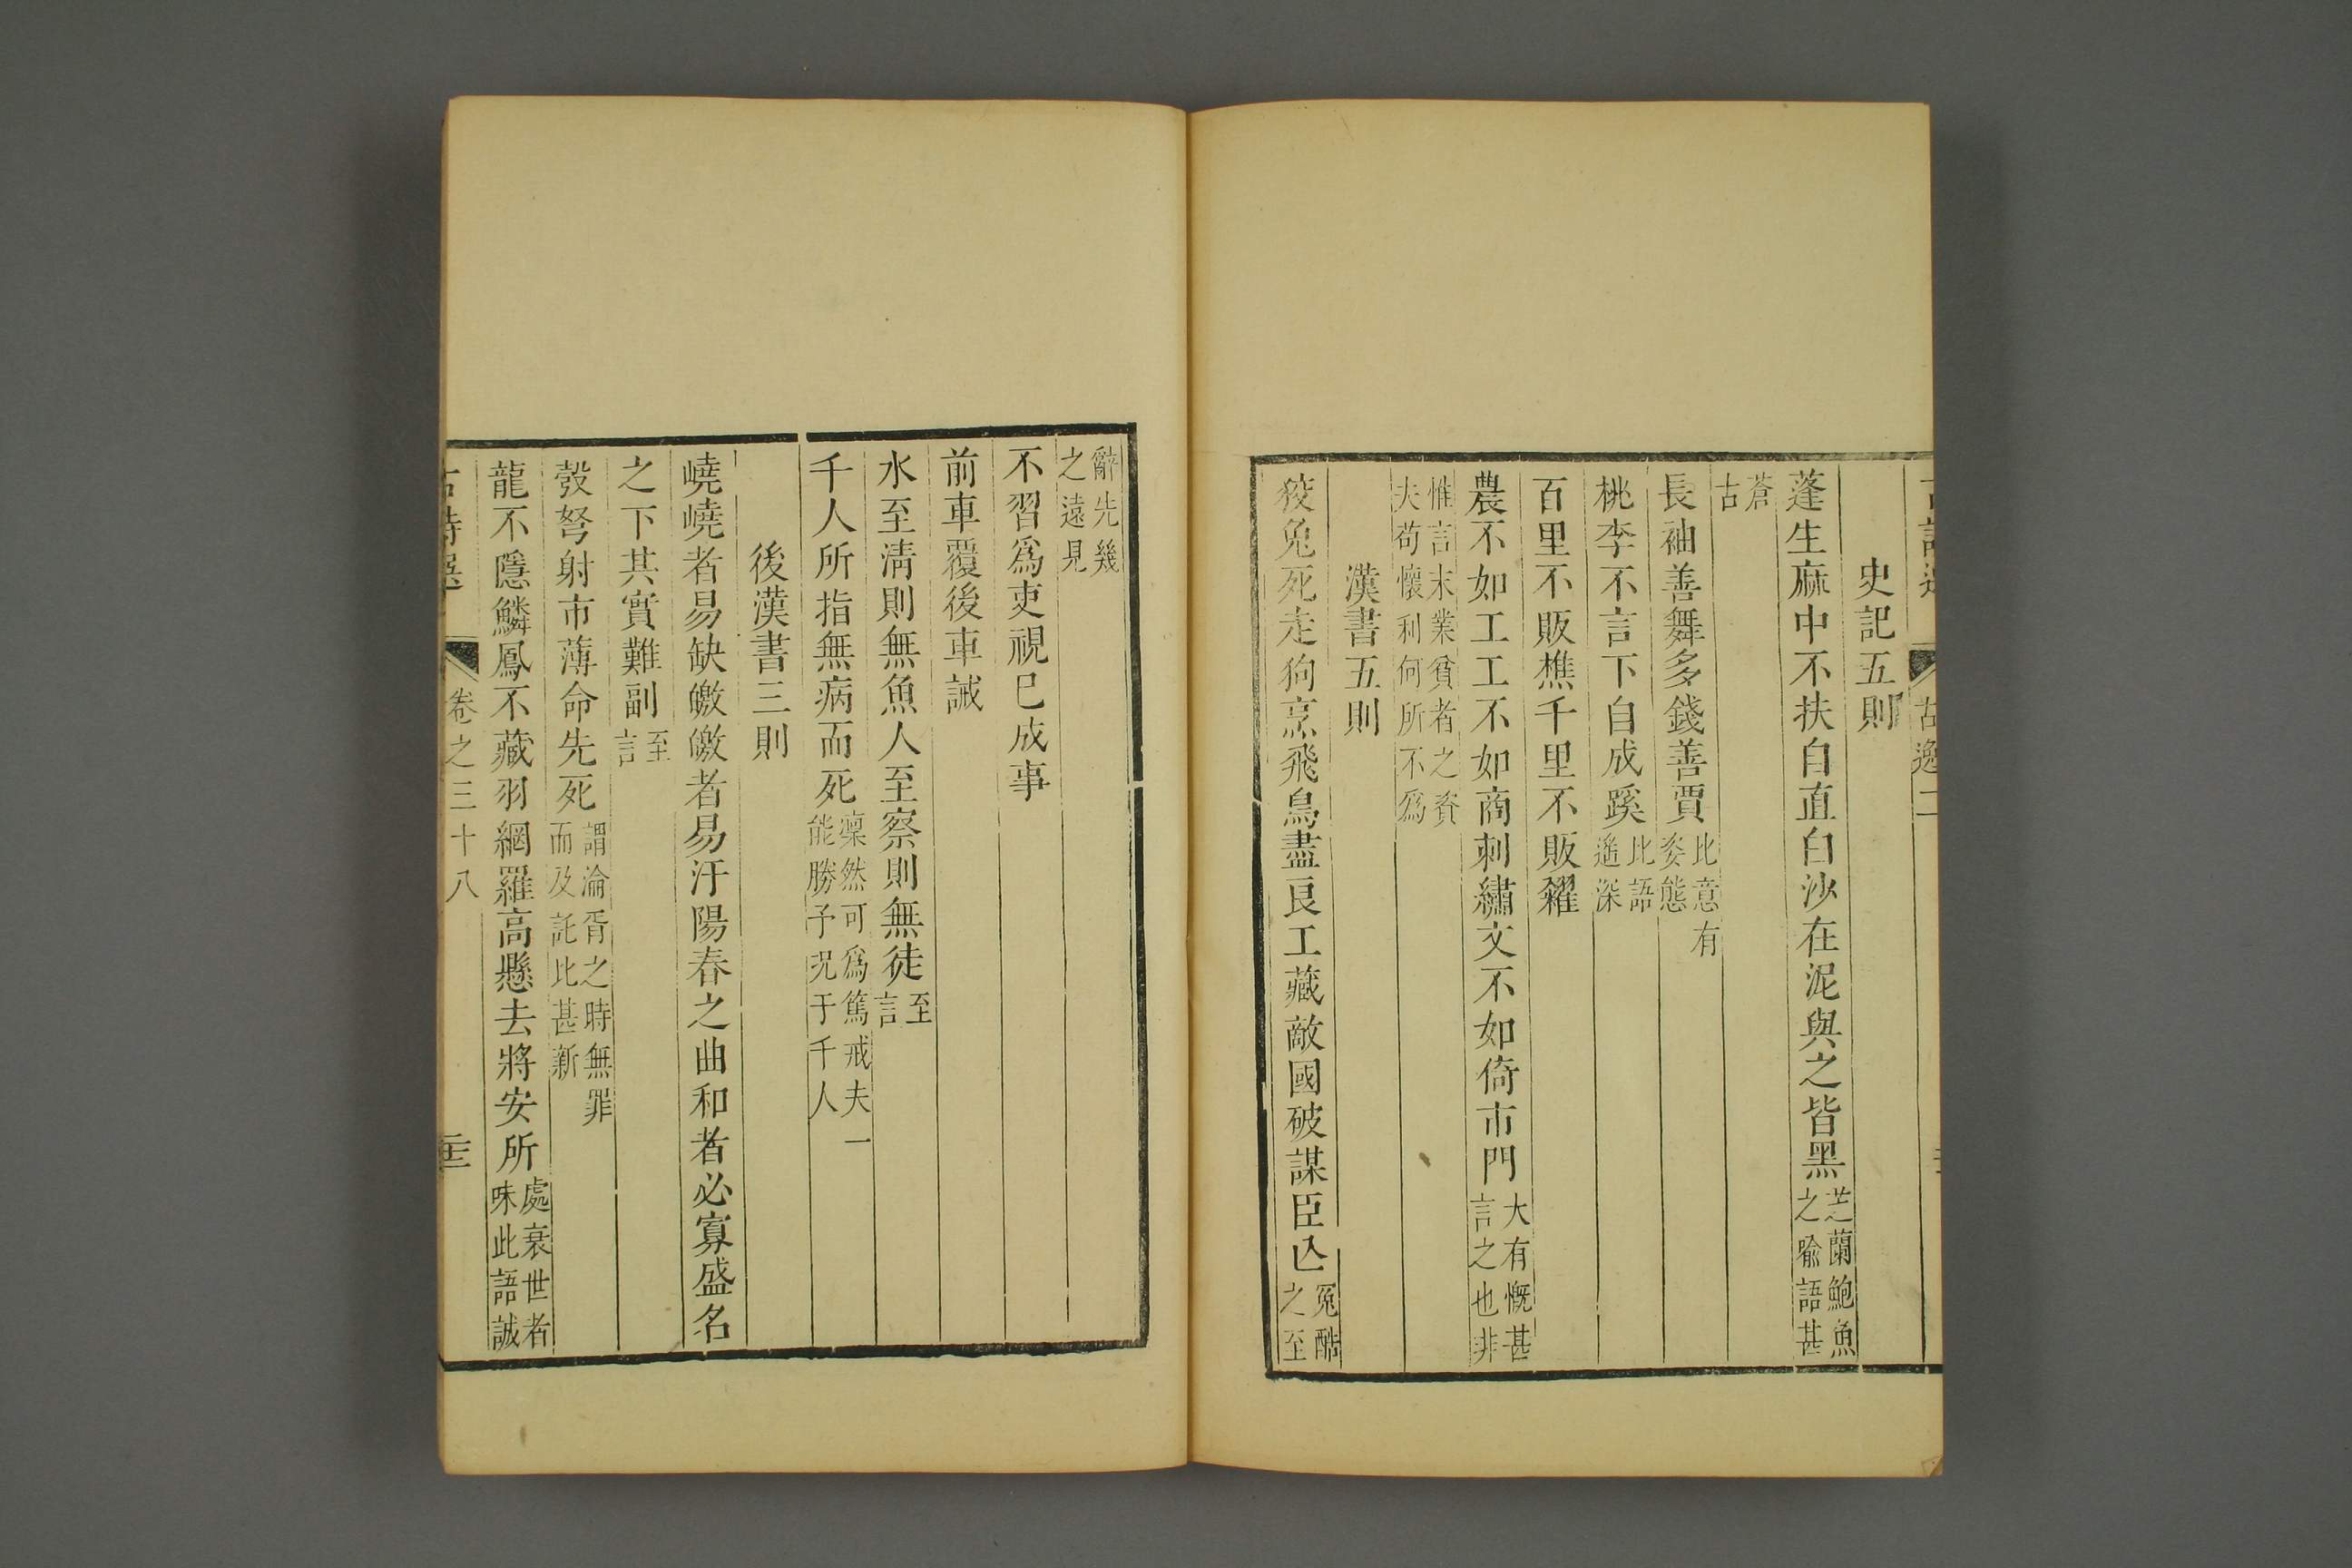 古逸二
史記五則
蓬生麻中不扶自直白沙在泥與之皆黑芝蘭鮑魚之喻語甚
蒼古
長袖善舞多錢善賈比意有姿態
桃李不言下自成蹊比語遙深
百里不販樵千里不販糴
農不如工工不如商刺繡文不如倚市門大有慨甚言之也非
惟言末業貧者之資夫苟懷利何所不爲
漢書五則
狡兔死走狗烹飛鳥盡良工藏敵國破謀臣亾冤酷之至
辭先幾之遠見
不習爲吏視已成事
前車覆後車誡
水至淸則無魚人至察則無徒至言
千人所指無病而死凜然可爲篤戒夫一能勝予況于千人
後漢書三則
嶢嶢者易缺皦皦者易汙陽春之曲和者必寡盛名
之下其實難副至言
彀弩射市薄命先死謂淪胥之時無罪而及託比甚新
龍不隱鱗鳳不藏羽網羅高懸去將安所處衰世者味此語誠
卷之三十八